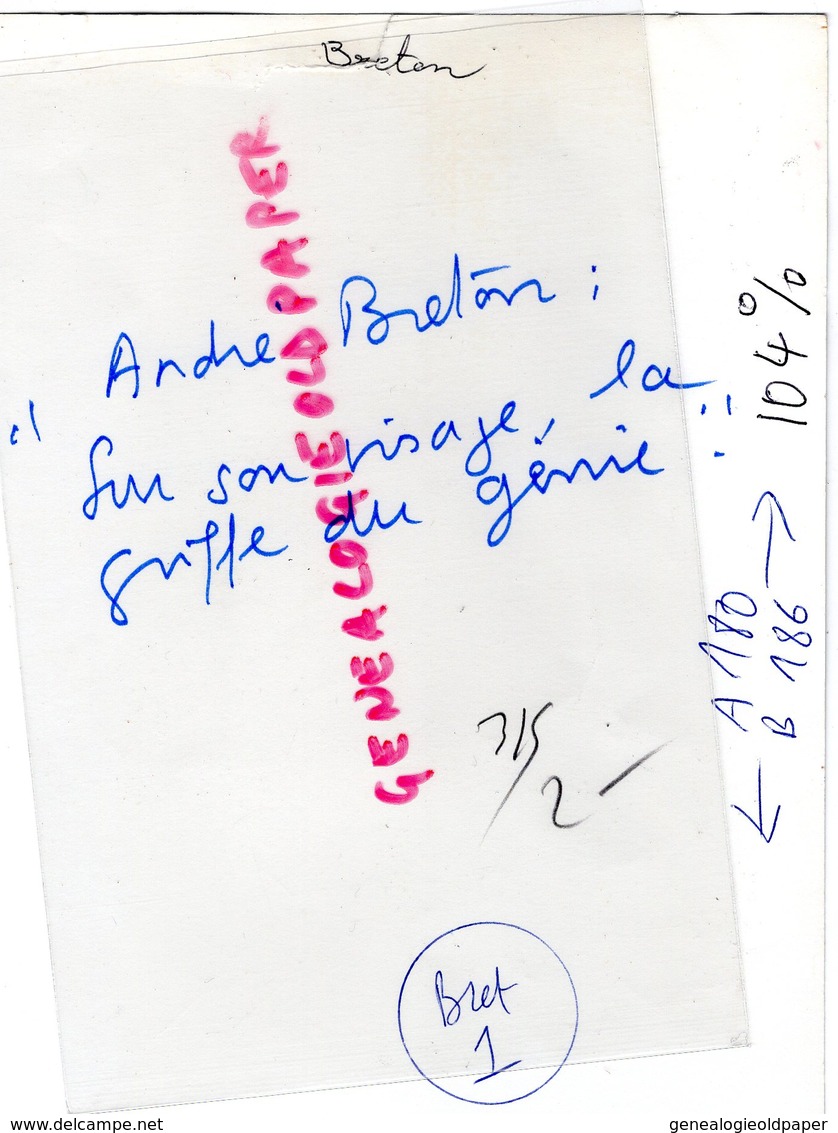 Breton
André Breton :
" Sur son visage, la
griffe du génie "
GENEALOGIE OLD PAPER
104%
A 180
B 186
315/2 -
Bret
1
delcampe.net
genealogieoldpaper